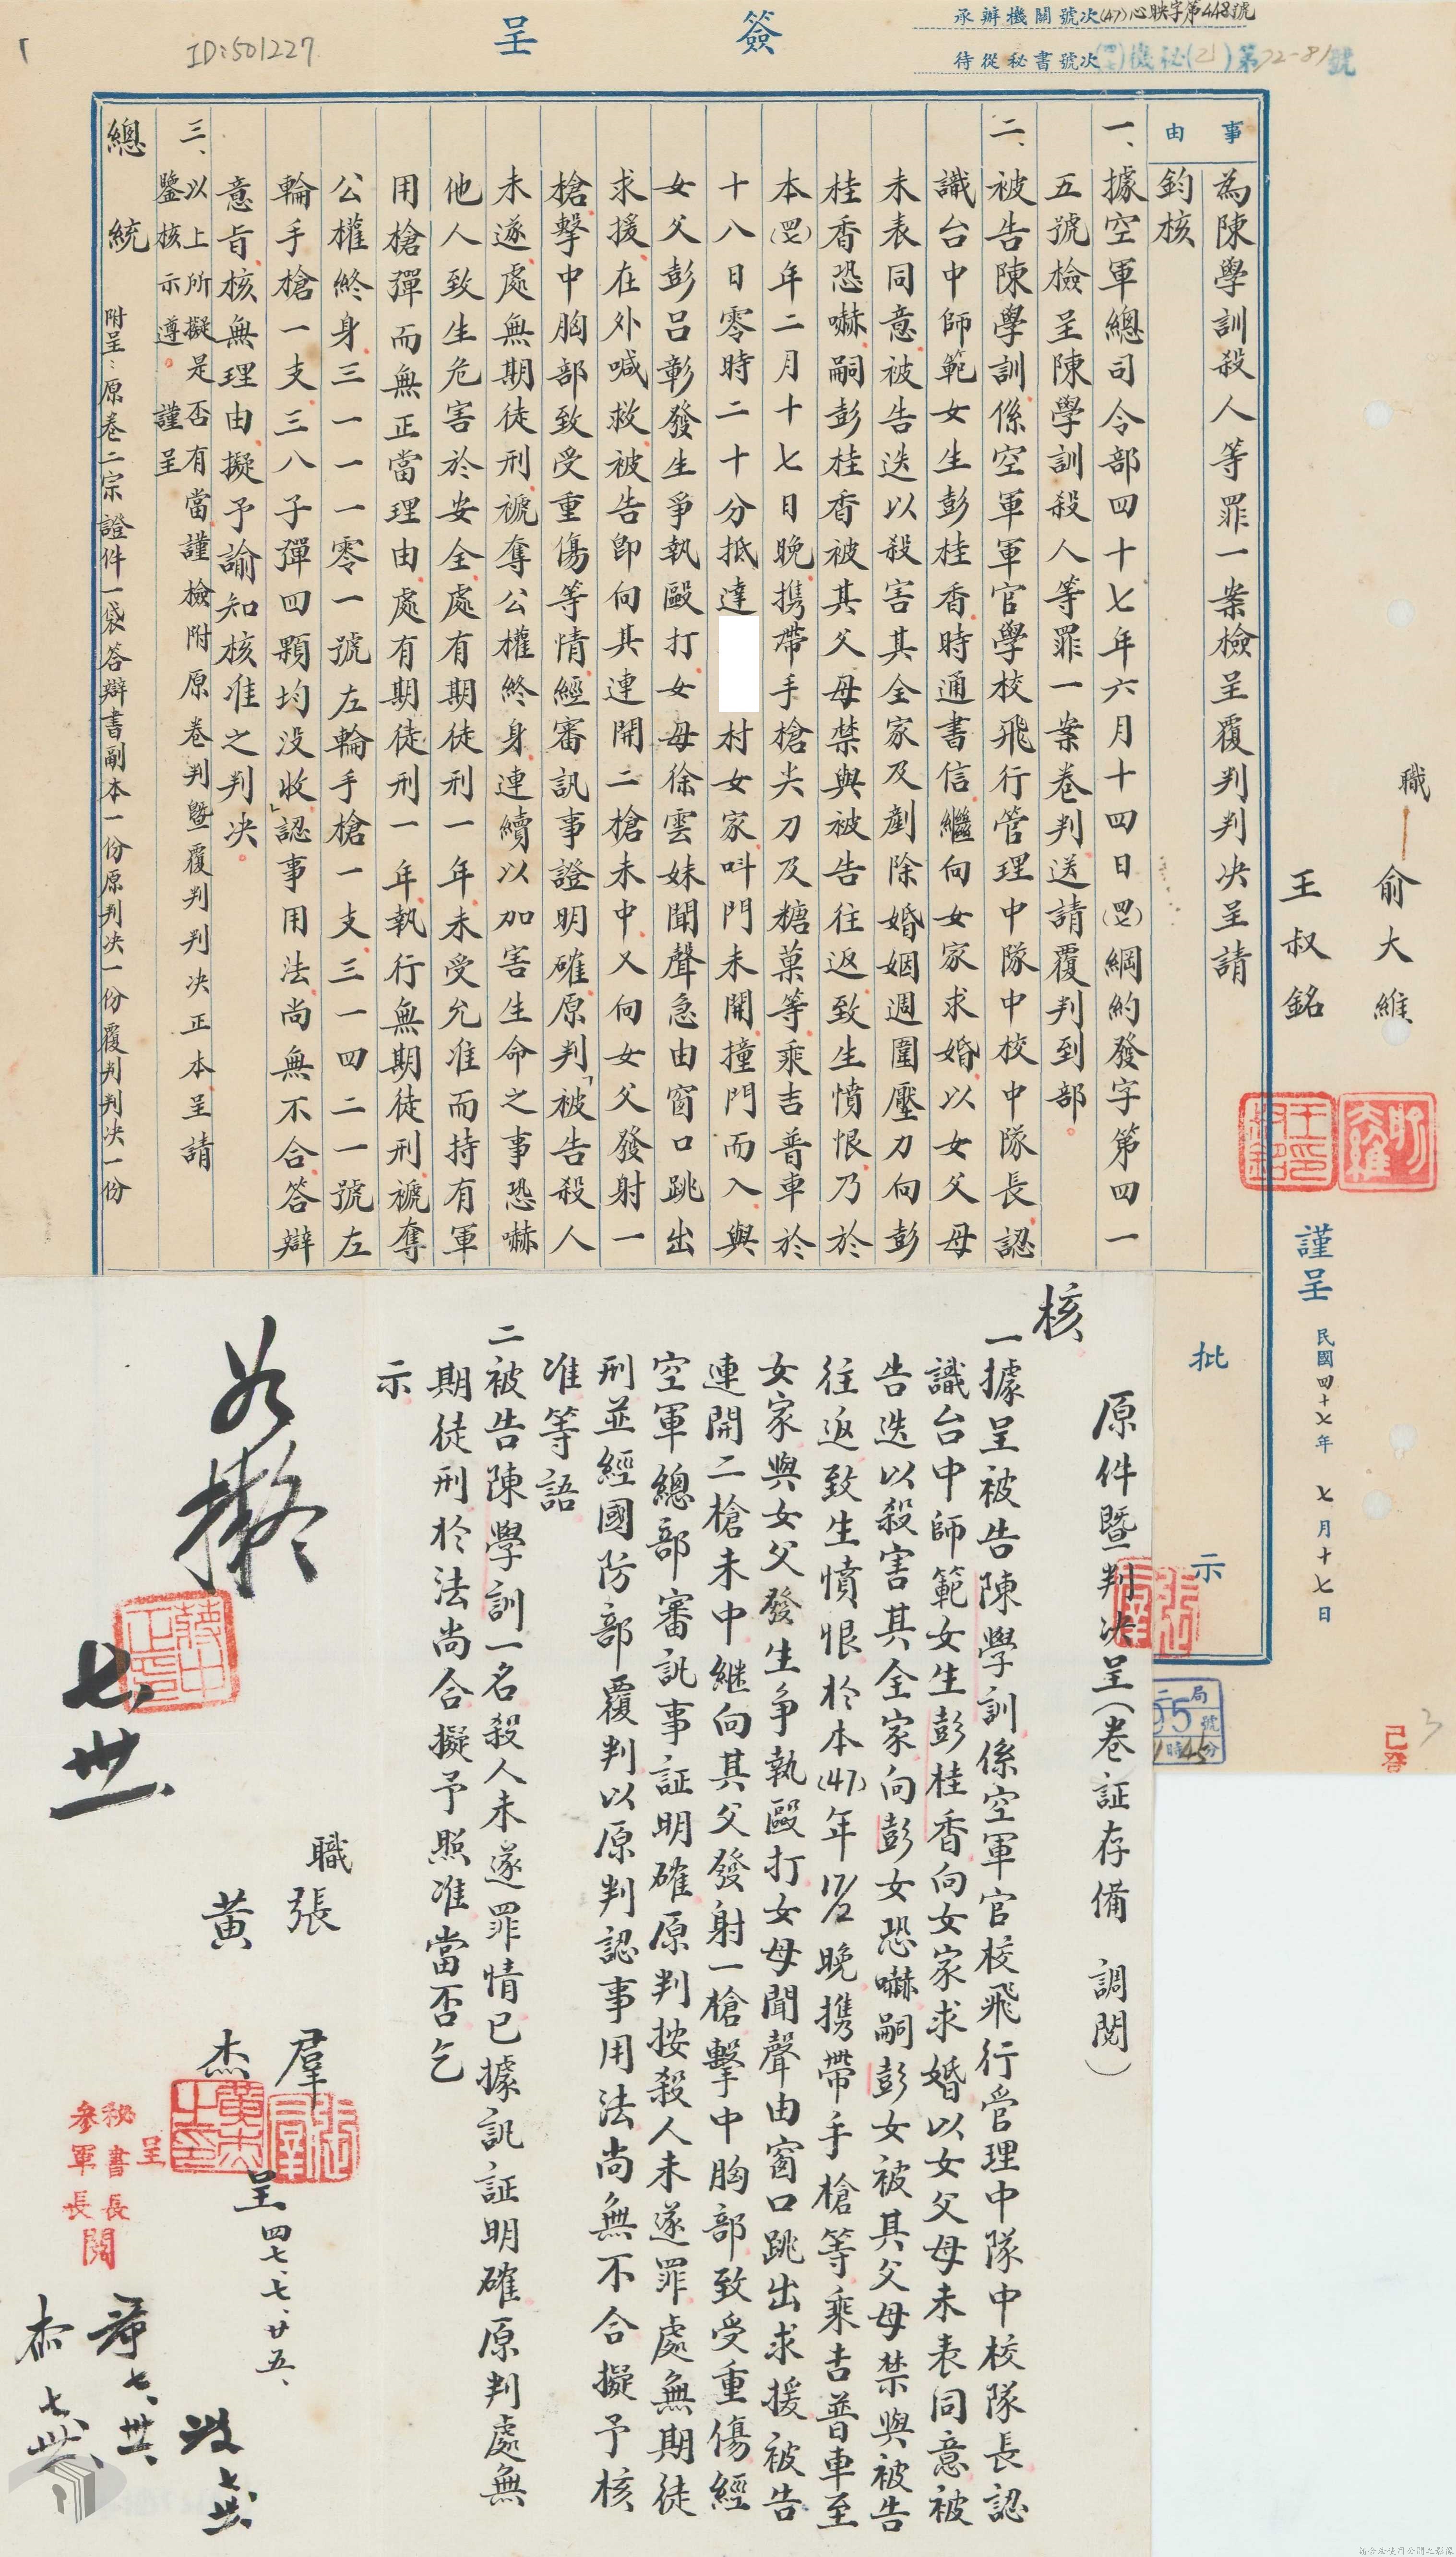 ID:501227
簽呈
承辦機關號次(47)心映字第448號
待從秘書號次
機秘(乙)第72-81號
事由
為陳學訓殺人等罪一案檢呈覆判判決呈請
鈞核
一、據空軍總司令部四十七年六月十四日(四七)綱約發字第四一
五號檢呈陳學訓殺人等罪一案卷判送請覆判到部。
二、被告陳學訓係空軍軍官學校飛行管理中隊中校中隊長認
識台中師範女生彭桂香時通書信繼向女家求婚以女父母
未表同意被告迭以殺害其全家及剷除婚姻週圍壓力向彭
桂香恐嚇嗣彭桂香被其父母禁與被告往返致生憤恨乃於
本(四七)年二月十七日晚携帶手槍尖刀及糖菓等乘吉普車於
十八日零時二十分抵達
村女家叫門未開撞門而入與
女父彭呂彰發生爭執毆打女母徐雲妹聞聲急由窗口跳出
求援在外喊救被告即向其連開二槍未中又向女父發射一
槍擊中胸部致受重傷等情經審訊事證明確原判「被告殺人
未遂處無期徒刑褫奪公權終身連續以加害生命之事恐嚇
他人致生危害於安全處有期徒刑一年未受允准而持有軍
用槍彈而無正當理由處有期徒刑一年執行無期徒刑褫奪
公權終身三一一一零一號左輪手槍一支三一四二一號左
輪手槍一支三八子彈四顆均没收」認事用法尚無不合答辯
意旨核無理由擬予諭知核准之判決。
三、以上所擬是否有當謹檢附原卷判暨覆判判決正本呈請
鑒核示遵。謹呈
總統
附呈：原卷二宗證件一袋答辯書副本一份原判決一份覆判判決一份
職
俞大維
王叔銘
謹呈
民國四十七年七月十七日
批示
已登
3
原件暨判決呈(卷証存備調閱)
核
一據呈被告陳學訓係空軍官校飛行管理中隊中校隊長認
識台中師範女生彭桂香向女家求婚以女父母未表同意被
告迭以殺害其全家向彭女恐嚇嗣彭女被其父母禁與被告
往返致生憤恨於本(47)年17/2晚携帶手槍等乘吉普車至
女家與女父發生爭執毆打女母聞聲由窗口跳出求援被告
連開二槍未中継向其父發射一槍擊中胸部致受重傷經
空軍總部審訊事証明確原判按殺人未遂罪處無期徒
刑並經國防部覆判以原判認事用法尚無不合擬予核
准等語
二被告陳學訓一名殺人未遂罪情已據訊証明確原判處無
期徒刑於法尚合擬予照准當否乞
示
職張羣
黃杰
呈四七、七、廿五、
如擬
七、卅一、
秘書長
參軍長
呈閱
請合法使用公開之影像